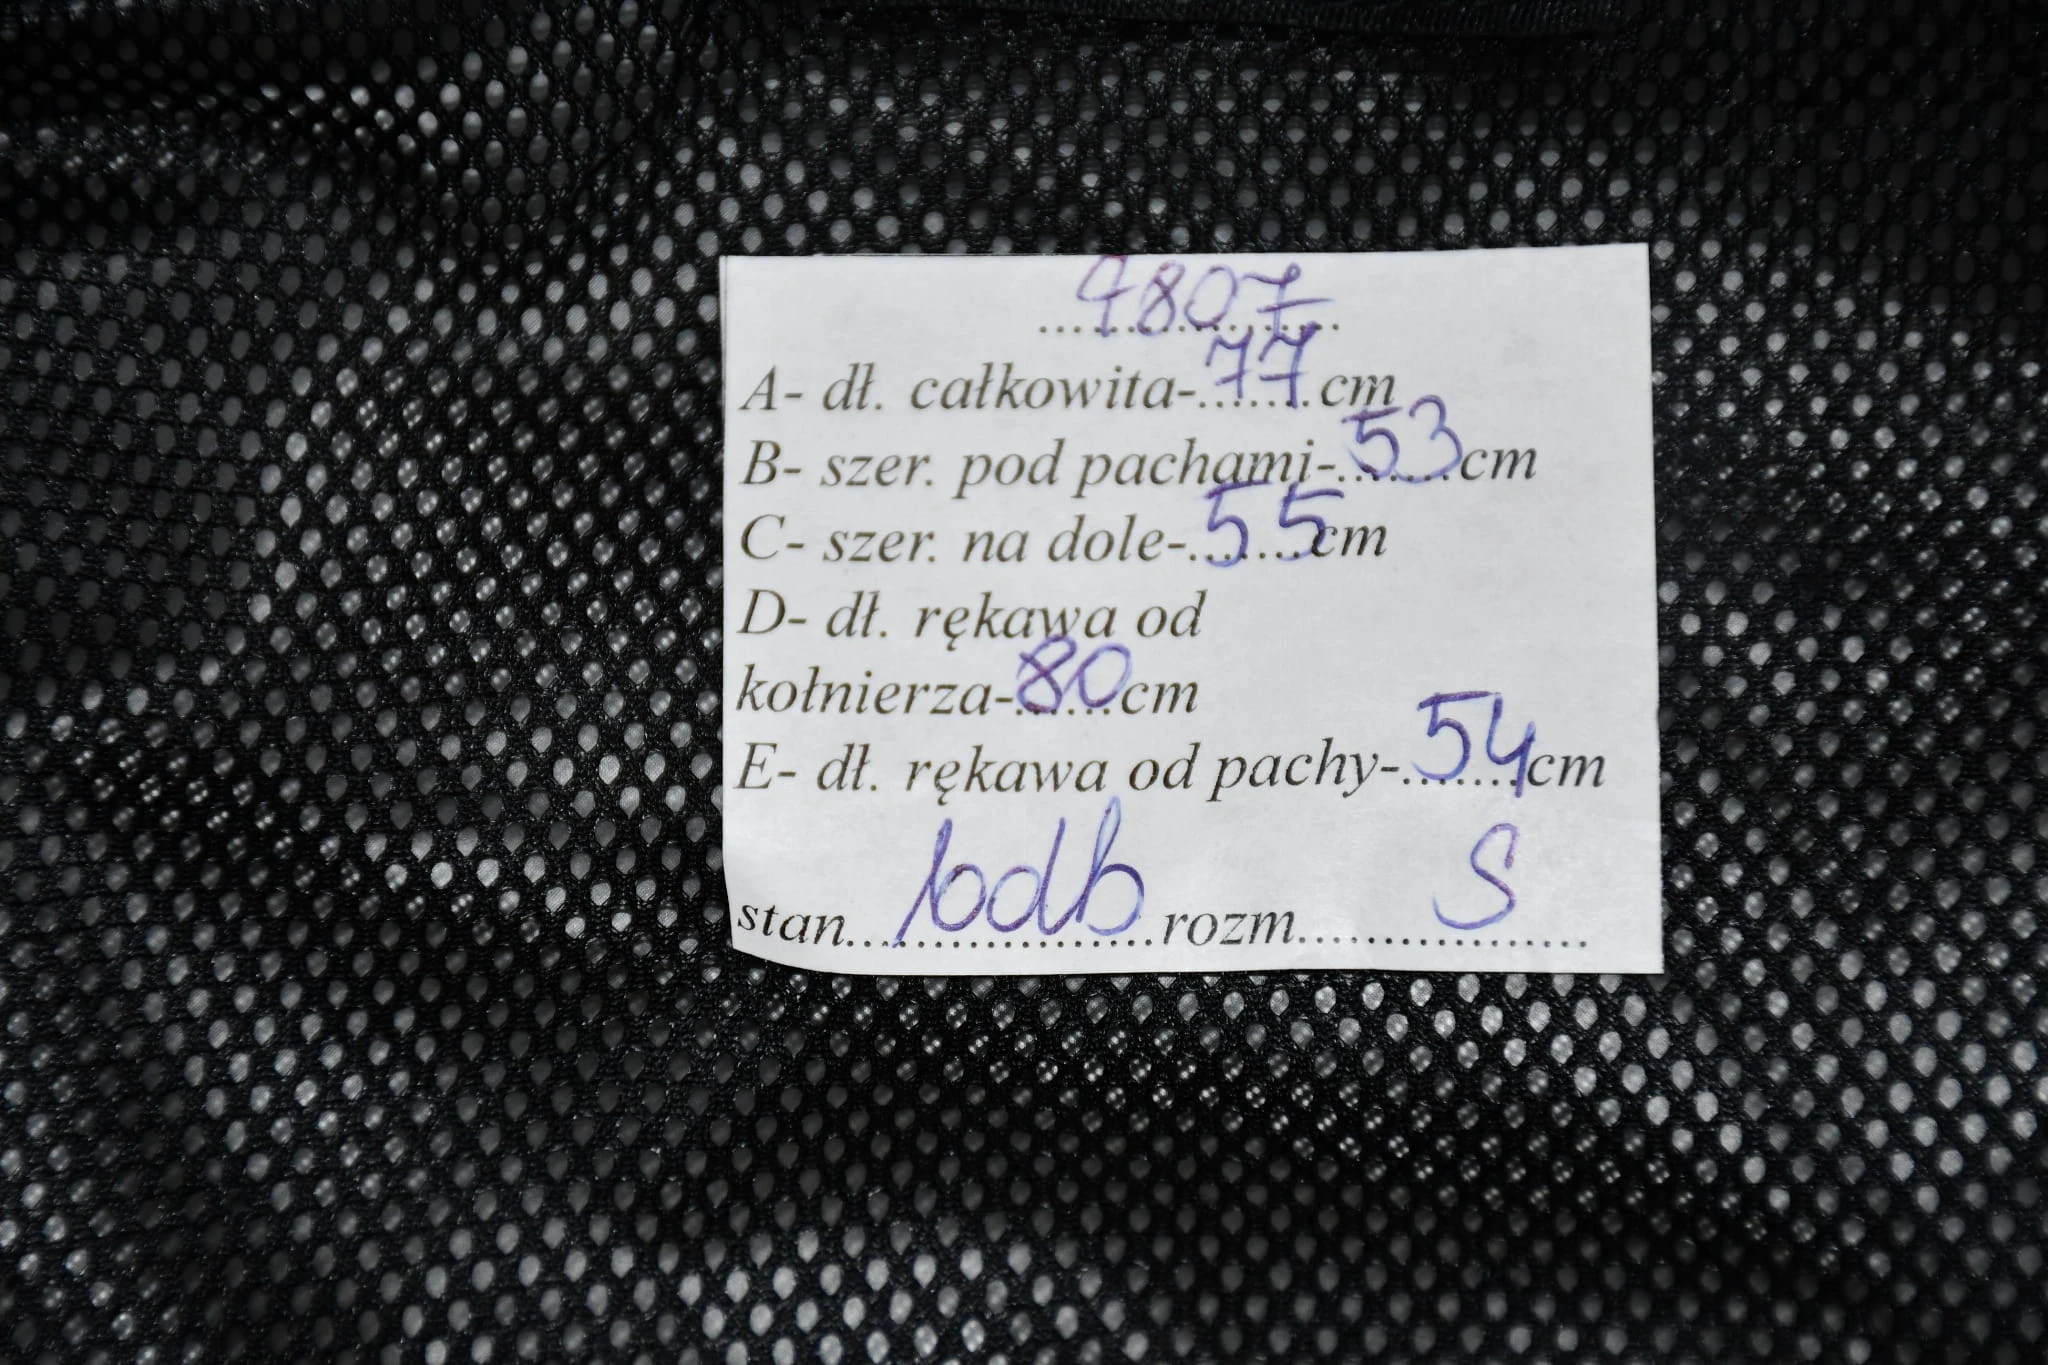 4807
A- dł. całkowita-77cm
B- szer. pod pachami-53cm
C- szer. na dole-55cm
D- dł. rękawa od
kołnierza-80cm
E- dł. rękawa od pachy-54cm
stan bdb rozm S